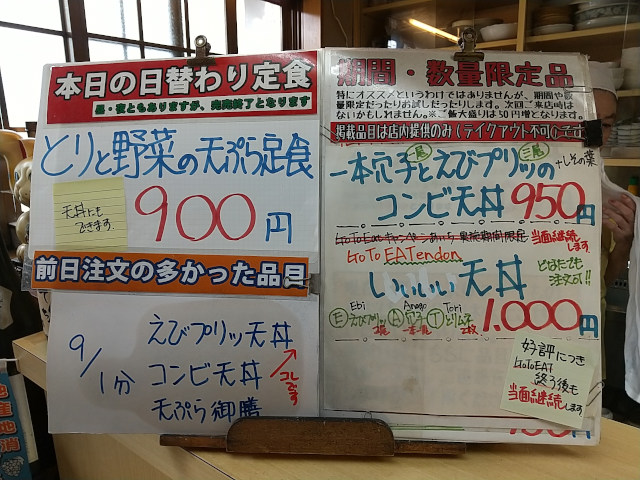 本日の日替わり定食
昼・夜ともありますが、完売終了となります
とりと野菜の天ぷら定食
天丼にも
できます。
900円
前日注文の多かった品目
9/1分
えびプリッ天丼
コンビ天丼
天ぷら御膳
コレです
期間・数量限定品
特にオススメというわけではありませんが、期間や数
量限定だったりお試しだったりします。次回ご来店時は
ないかもしれません。※ご飯大盛りは50円増となります。
掲載品目は店内提供のみ(テイクアウト不可)です
一本穴子と二尾えびプリッの三尾
+しその葉
コンビ天丼 950円
GoToEatキャンペーン
期間限定
当面継続します
GoTo EATendon
いいいい天丼
どなたでも
注文可!!
Ebi
Ⓔえびプリッ
Anago
Ⓐ穴子
一本
Tori
Ⓣとりムネ
2枚
1,000円
好評につき
GoToEAT
終う後も
当面継続します
地産地消